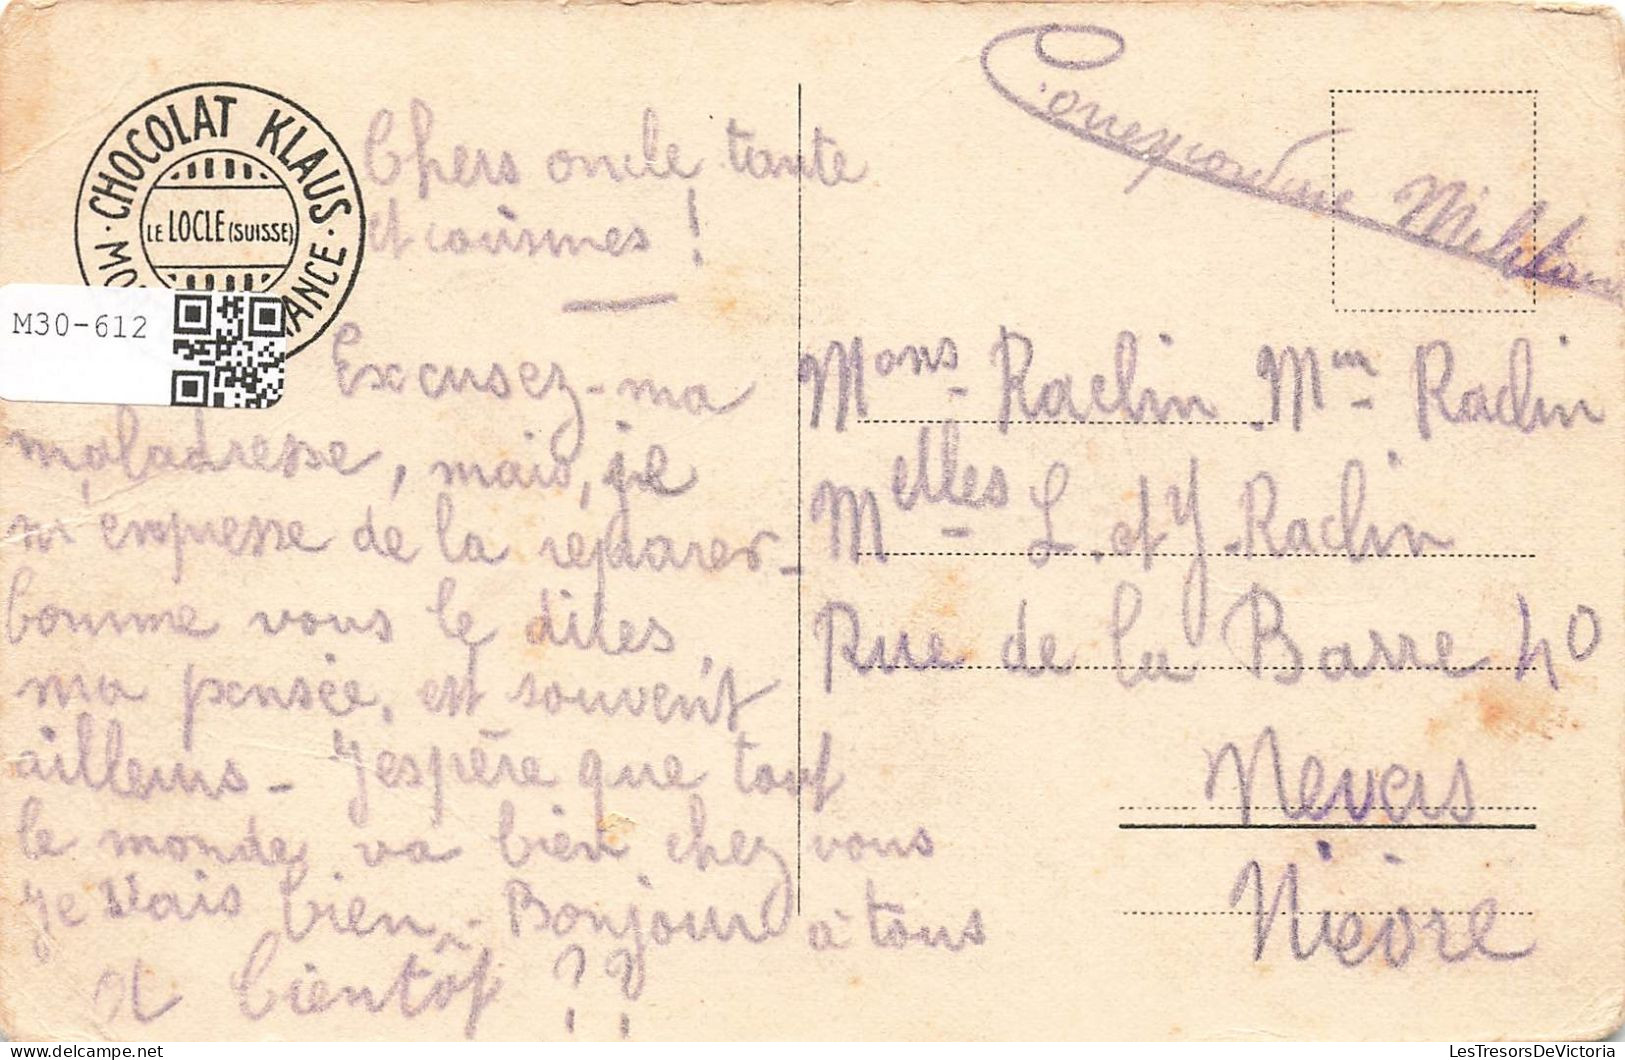 CHOCOLAT KLAUS
LE LOCLE (SUISSE)
M30-612
Chers oncle tante
et cousines !
Excusez-ma
maladresse, mais, je
m'empresse de la réparer-
Comme vous le dites,
ma pensée, est souvent
ailleurs - J'espère que tout
le monde, va bien chez vous
Je vais bien - Bonjour à tous
et bientôt ??
Correspondance Militaire
Mons Raclin Mm Raclin
Melles L. et Y. Raclin
Rue de la Barre 40
Nevers
Nièvre
LesTresorsDeVictoria